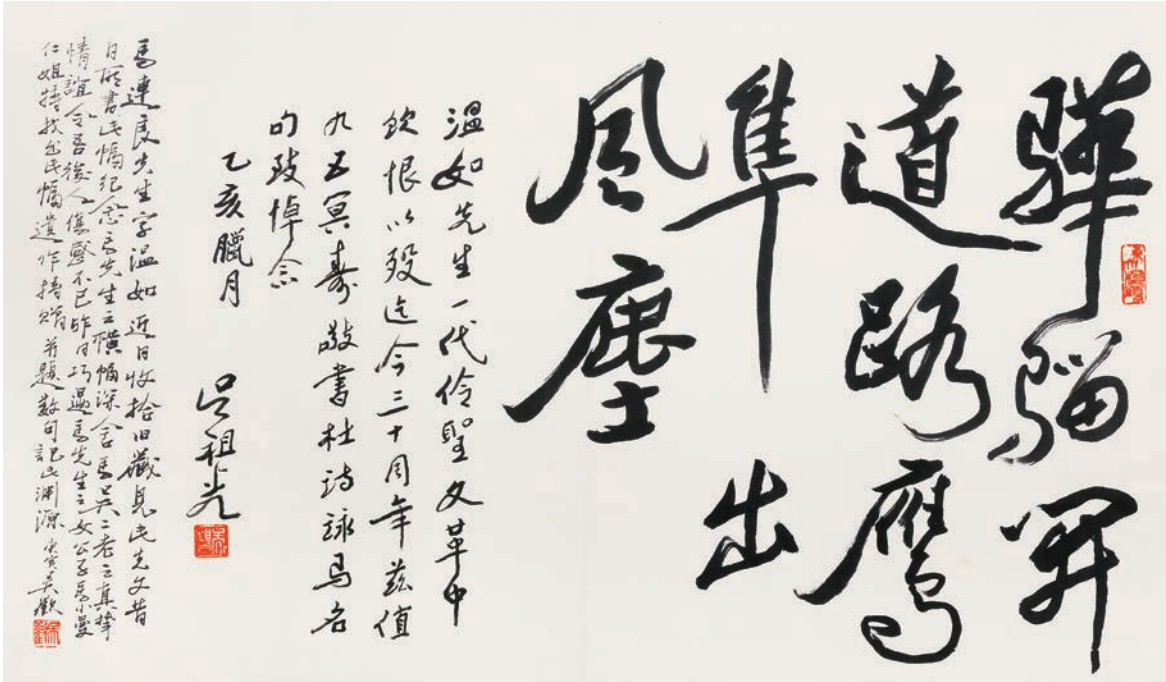 驊骝開
道路鹰
隼出
风塵
温如先生一代伶聖文革中
飲恨以殁迄今三十周年兹值
九五冥寿敬書杜诗詠马名
句致悼念
乙亥臘月
吴祖光
馬連良先生字温如近日收拾旧藏見此先父昔
日所書此幅纪念馬先生之横幅深含馬吴二老之真摯
情誼令吾後人感不已昨日巧遇馬先生之女公子馬小曼
仁姐特找出此幅遺作持贈并題数句記此渊源 庚寅吴歡